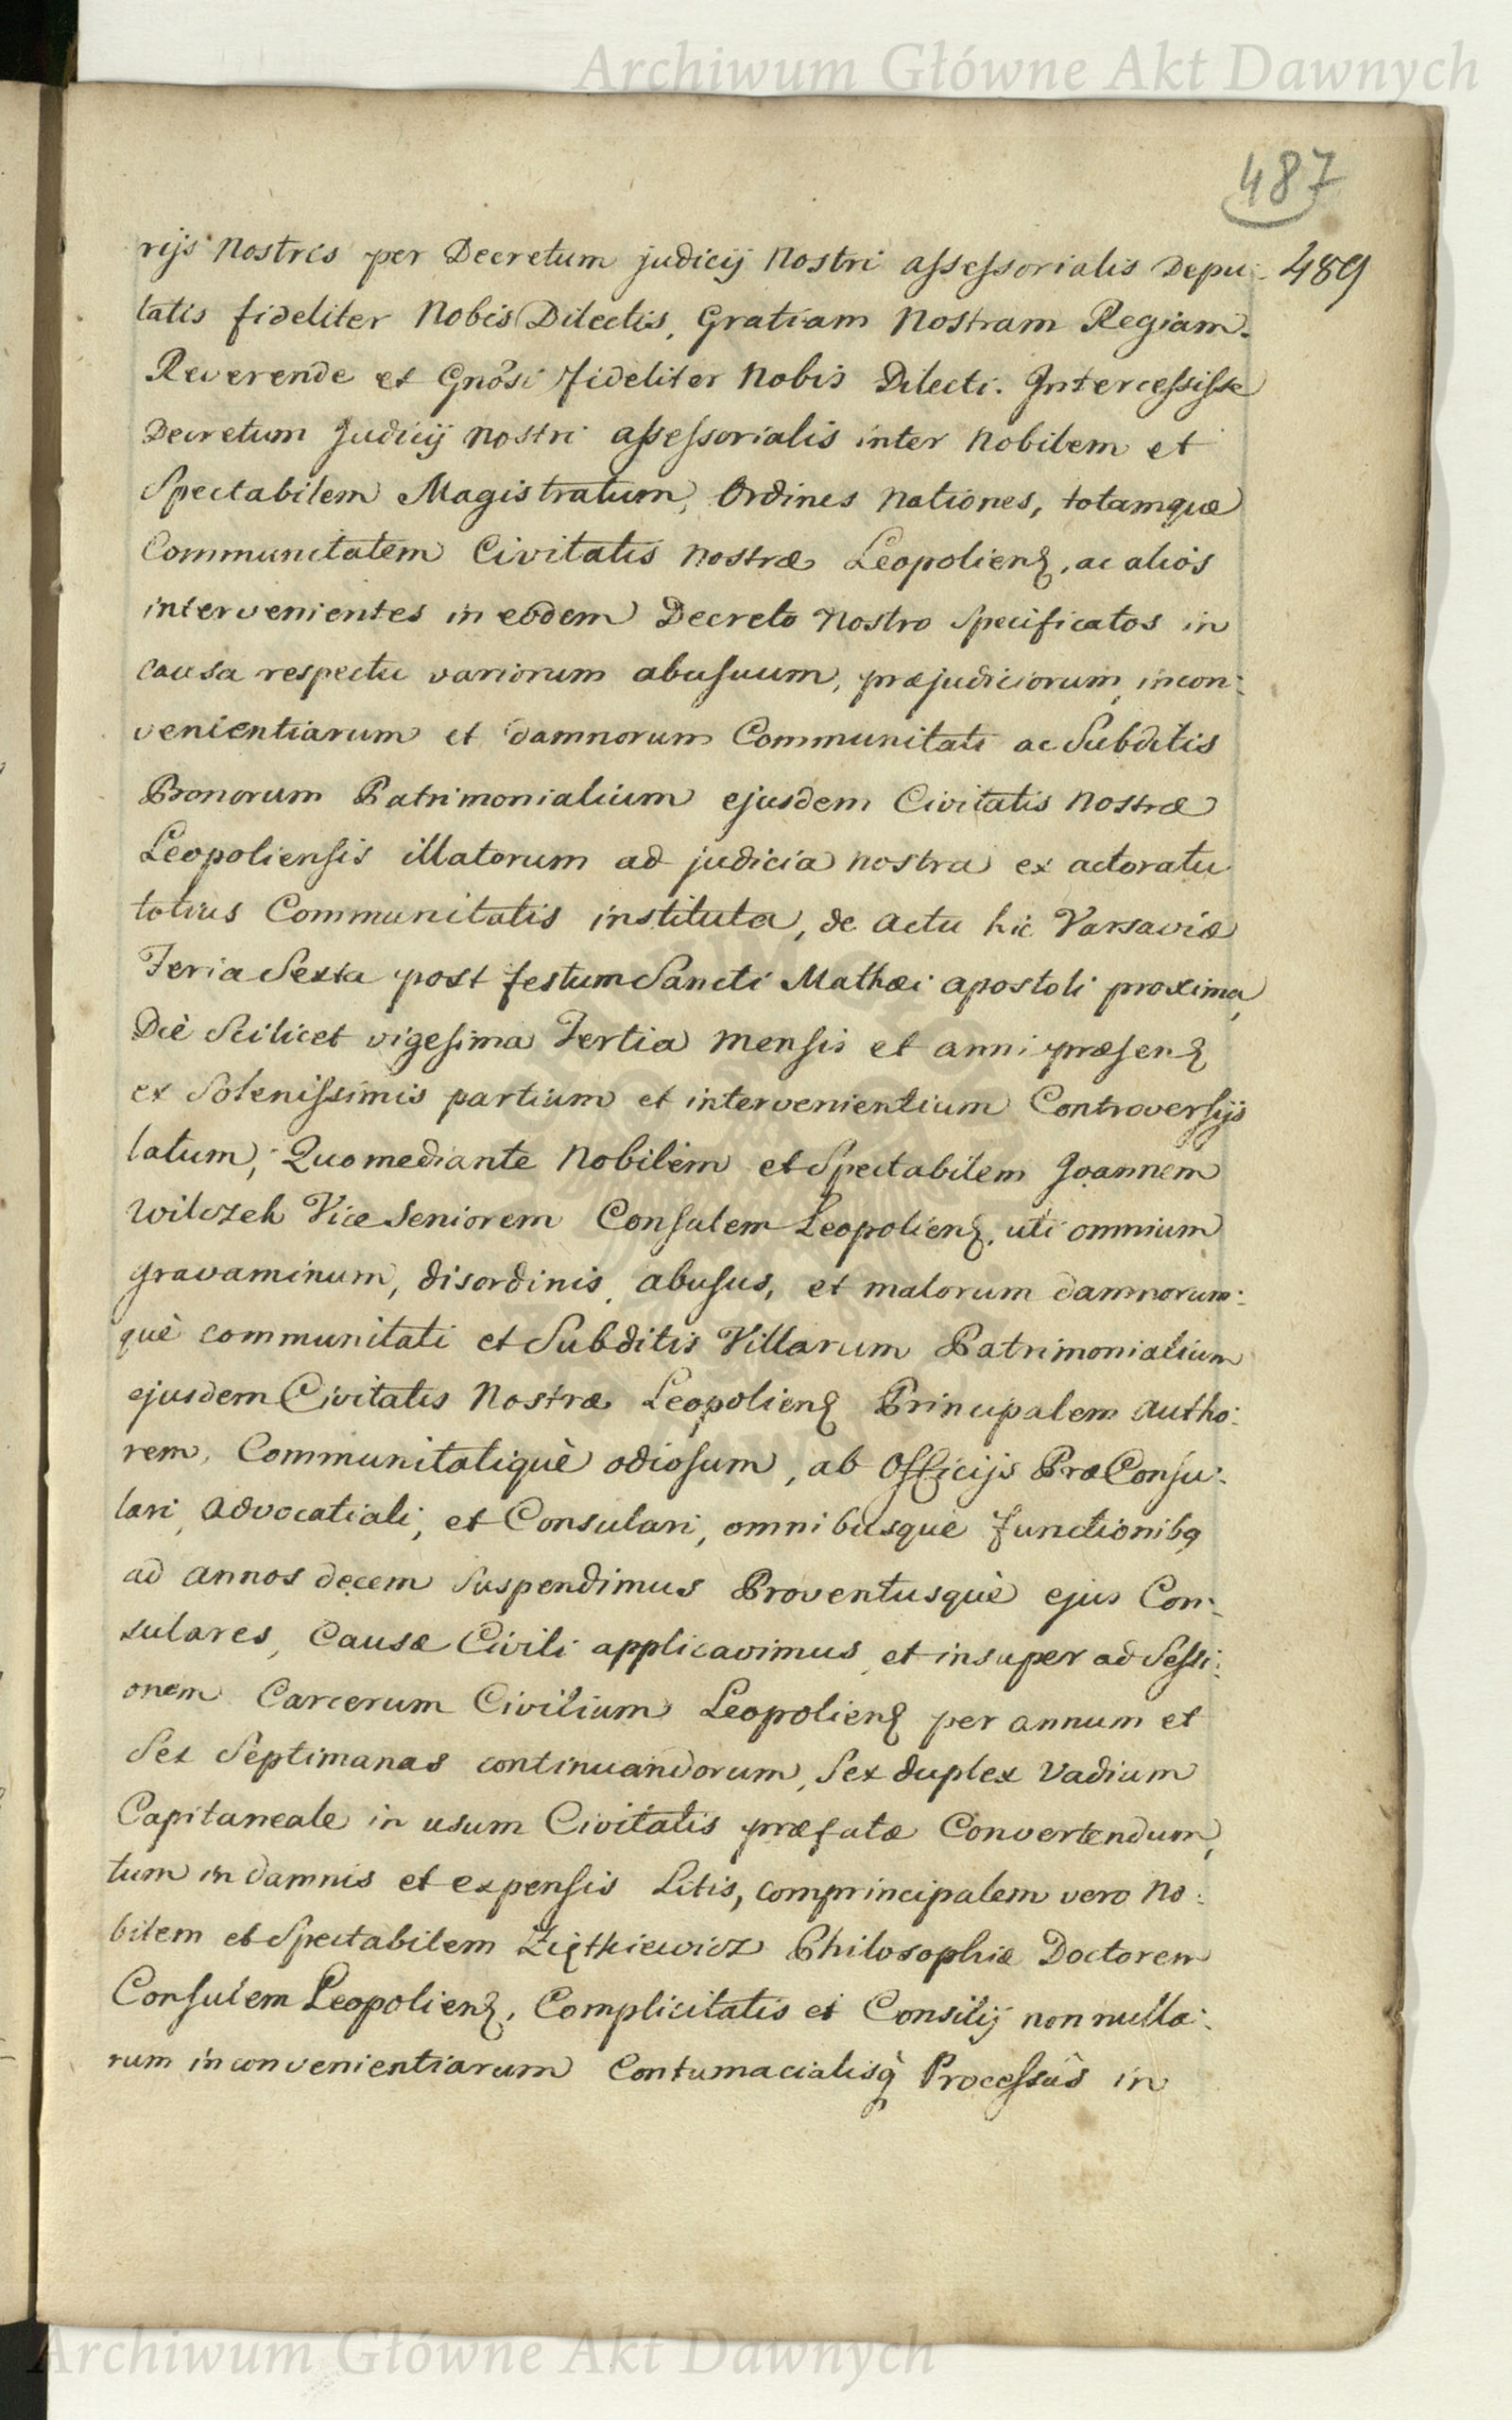 Archiwum Główne Akt Dawnych
487
rijs Nostris per Decretum judicij Nostri assessorialis Depu: 489
tatis fideliter Nobis Dilectis, Gratiam Nostram Regiam.
Reverende et Gnosi fideliter Nobis Dilecti. Intercessisse
Decretum Judicij Nostri assessorialis inter Nobilem et
Spectabilem Magistratum, Ordines Nationes, totamque
Communitatem Civitatis Nostræ Leopolien, ac alios
intervenientes in eodem Decreto Nostro Specificatos in
causa respectu variorum abusuum, præjudiciorum, incon:
venientiarum et damnorum Communitati ac Subditis
Bonorum Patrimonialium ejusdem Civitatis Nostræ
Leopoliensis illatorum ad judicia nostra ex actoratu
totius Communitatis instituta, de actu hic Varsaviæ
Feria Sexta post festum Sancti Mathæi apostoli proxima,
Diè Scilicet vigesima Tertia mensis et anni præsen
ex Solenissimis partium et intervenientium Controversijs
latum, Quo mediante Nobilem et Spectabilem Joannem
Wilczek Vice Seniorem Consulem Leopolien, uti omnium
gravaminum, disordinis, abusus, et malorum damnorum:
què communitati et Subditis Villarum Patrimonialium
ejusdem Civitatis Nostræ Leopolien Principalem autho:
rem, Communitatiquè odiosum, ab Officijs Præ Consu:
lari, advocatiali, et Consulari, omnibusquè functionibq
ad annos decem Suspendimus Proventusquè ejus Con:
sulares, Causæ Civili applicavimus, et insuper ad Sessi:
onem Carcerum Civilium Leopolien per annum et
Sex Septimanas continuandorum, Sex duplex Vadium
Capitaneale in usum Civitatis præfatæ Convertendum,
tum in damnis et expensis Litis, comprincipalem vero No:
bilem et Spectabilem Ziętkiewicz Philosophiæ Doctorem
Consulem Leopolien, Complicitatis et Consilij non nulla:
rum inconvenientiarum Contumacialisq Processûs in
Archiwum Główne Akt Dawnych